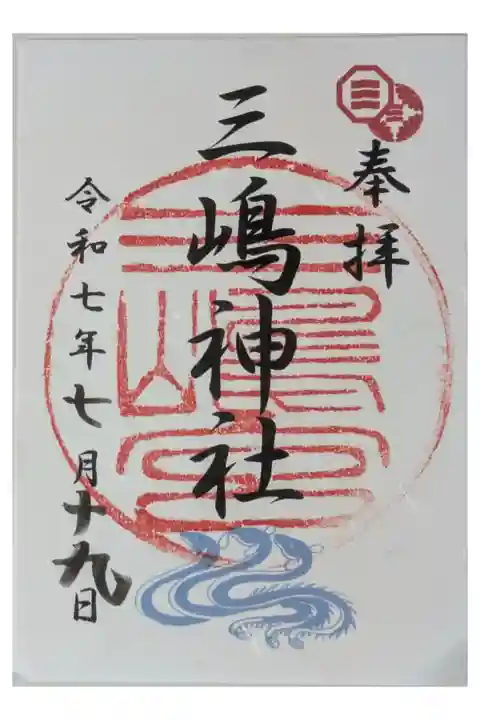 奉拝
三嶋神社
令和七年七月十九日